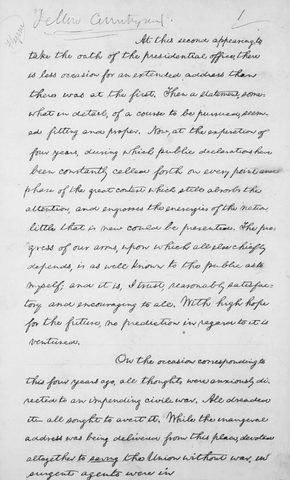 Fellow Countrymen: 1
At this second appearing to
take the oath of the presidential office, there
is less occasion for an extended address than
there was at the first. Then a statement, some-
what in detail, of a course to be pursued, seem-
ed fitting and proper. Now, at the expiration of
four years, during which public declarations have
been constantly called forth on every point and
phase of the great contest which still absorbs the
attention, and engrosses the energies of the nation,
little that is new could be presented. The pro-
gress of our arms, upon which all else chiefly
depends, is as well known to the public as to
myself; and it is, I trust, reasonably satisfac-
tory and encouraging to all. With high hope
for the future, no prediction in regard to it is
ventured.
On the occasion corresponding to
this four years ago, all thoughts were anxiously di-
rected to an impending civil war. All dreaded
it—all sought to avert it. While the inaugeral
address was being delivered from this place, devoted
altogether to saving the Union without war, in-
surgent agents were in